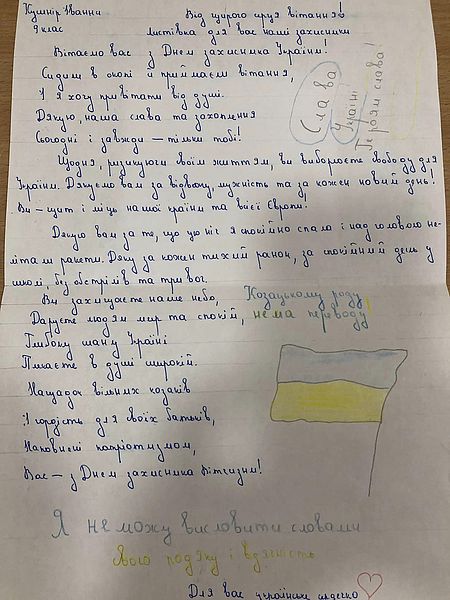 Кушнір Іванни
9 клас
Від щирого серця вітання!
Листівка для вас наші захисники
Вітаємо вас з Днем захисника України!
Сидим в окопі и приймаєм вітання,
І я хочу привітати від душі.
Дякую, наша слава та захоплення
Сьогодні і завжди – тільки тобі!
Слава
Україні
Героям слава!
Щодня, ризикуючи своїм життям, ви виборюєте свободу для
України. Дякуємо вам за відвагу, мужність та за кожен новий день!
Ви – щит і міць нашої країни та всієї Європи!
Дякую вам за те, що цю ніч я спокійно спала і над головою не
літали ракети. Дяку за кожен тихий ранок, за спокійний день у
школі, без обстрілів та тривог.
Ви захищаєте наше небо,
Даруєте людям мир та спокій,
Глибоку шану Україні
Плекаєте в душі широкій.
Нащадок вільних козаків
І гордість для своїх батьків,
Наповнені патріотизмом,
Вас – з Днем захисника Вітчизни!
Козацькому роду
нема переводу!
Я не можу висловити словами
свою подяку і вдячність
Для вас українське сердечко